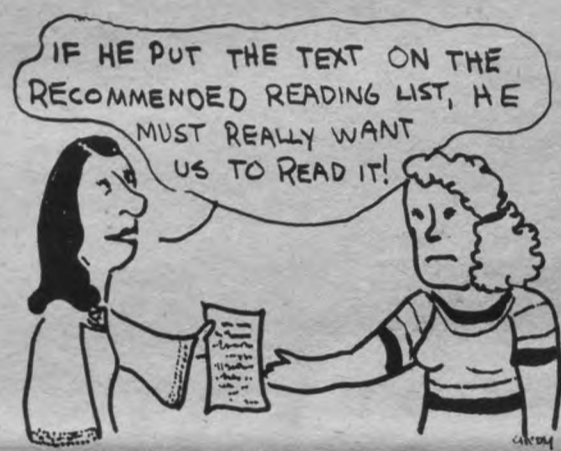 IF HE PUT THE TEXT ON THE
RECOMMENDED READING LIST, HE
MUST REALLY WANT
US TO READ IT!